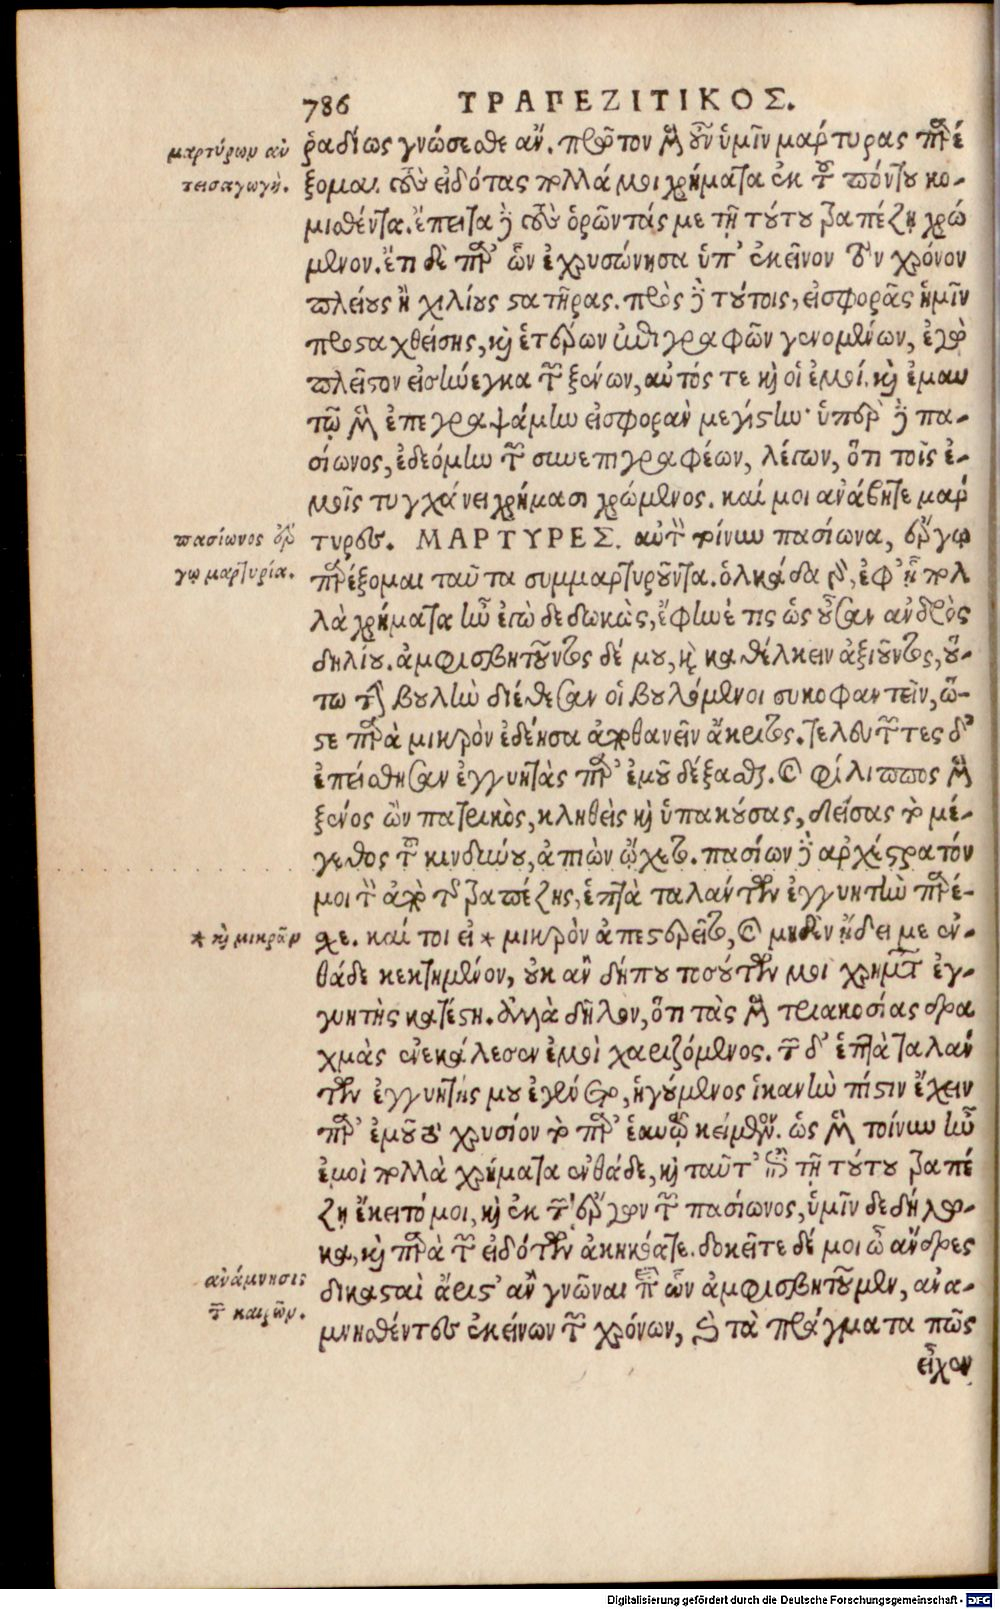 786 ΤΡΑΠΕΖΙΤΙΚΟΣ.
μαρτύρων ἀν
τεισαγωγὴ.
ῥᾳδίως γνώσεσθε ἄν. πρῶτον μὲν οὖν ὑμῖν μάρτυρας παρέ
ξομαι τοὺς εἰδότας πολλά μοι χρήματα ἐκ τοῦ πόντου κο-
μισθέντα. ἔπειτα δὲ τοὺς ὁρῶντάς με τῇ τούτου τραπέζῃ χρώ
μενον. ἔτι δὲ παρ' ὧν ἐχρυσώνησα ὑπ' ἐκεῖνον τὸν χρόνον
πλείους ἢ χιλίους στατῆρας. πρὸς δὲ τούτοις, εἰσφορᾶς ἡμῖν
προσταχθείσης, καὶ ἑτέρων ἐπιγραφῶν γενομένων, ἐγὼ
πλεῖστον εἰσήνεγκα τῶν ξένων, αὐτός τε καὶ οἱ ἐμοί. καὶ ἐμαυ
τῷ μὲν ἐπεγραψάμην εἰσφορὰν μεγίστην· ὑπὲρ δὲ πα-
σίωνος, ἐδεόμην τῶν συνεπιγραφέων, λέγων, ὅτι τοῖς ἐ-
μοῖς τυγχάνει χρήμασι χρώμενος. καί μοι ἀνάβητε μάρ
τυρες. ΜΑΡΤΥΡΕΣ. αὐτὸν τοίνυν πασίωνα, ἔργῳ
πασίωνος ἔρ
γῳ μαρτυρία.
παρέξομαι ταῦτα συμμαρτυροῦντα. ὁλκάδα γὰρ, ἐφ' ᾗ πολ
λὰ χρήματα ἦν ἐγὼ δεδωκὼς, ἔφηνέ τις ὡς οὖσαν ἀνδρὸς
δηλίου. ἀμφισβητοῦντος δέ μου, καὶ καθέλκειν ἀξιοῦντος, οὕ-
τω τὴν βουλὴν διέθεσαν οἱ βουλόμενοι συκοφαντεῖν, ὥ-
στε παρὰ μικρὸν ἐδέησα ἀποθανεῖν ἄκριτος. τελευτῶντες δ'
ἐπείσθησαν ἐγγυητὰς παρ' ἐμοῦ δέξασθαι. καὶ φίλιππος μὲν
ξένος ὢν πατρικὸς, κληθεὶς καὶ ὑπακούσας, δείσας τὸ μέ-
γεθος τοῦ κινδύνου, ἀπιὼν ᾤχετο. πασίων δὲ ἀρχέστρατόν
μοι τὸν ἀπὸ τῆς τραπέζης, ἑπτὰ ταλάντων ἐγγυητὴν παρέ-
σχε. καί τοι εἰ * μικρὸν ἀπεστερεῖτο, καὶ μηδὲν ᾔδει με ἐν-
* καὶ μικρῶν
θάδε κεκτημένον, οὐκ ἂν δήπου τοσούτων μοι χρημάτων ἐγ-
γυητὴς κατέστη. ἀλλὰ δῆλον, ὅτι τὰς μὲν τριακοσίας δρα
χμὰς ἐνεκάλεσεν ἐμοὶ χαριζόμενος. τῶν δ' ἑπτὰ ταλάν
των ἐγγυητής μου ἐγένετο, ἡγούμενος ἱκανὴν πίστιν ἔχειν
παρ' ἐμοῦ τὸ χρυσίον τὸ παρ' ἑαυτῷ κείμενον. ὡς μὲν τοίνυν ἦν
ἐμοὶ πολλὰ χρήματα ἐνθάδε, καὶ ταῦτ' ἐπὶ τῇ τούτου τραπέ
ζῃ ἔκειτό μοι, καὶ ἐκ τῶν ἔργων τῶν πασίωνος, ὑμῖν δεδήλω-
κα, καὶ παρὰ τῶν εἰδότων ἀκηκόατε. δοκεῖτε δέ μοι ὦ ἄνδρες
ἀνάμνησις
τῶν καιρῶν.
δικασταὶ ἄριστ' ἂν γνῶναι περὶ ὧν ἀμφισβητοῦμεν, ἀνα-
μνησθέντες ἐκείνων τῶν χρόνων, καὶ τὰ πράγματα πῶς
εἶχεν
Digitalisierung gefördert durch die Deutsche Forschungsgemeinschaft - DFG